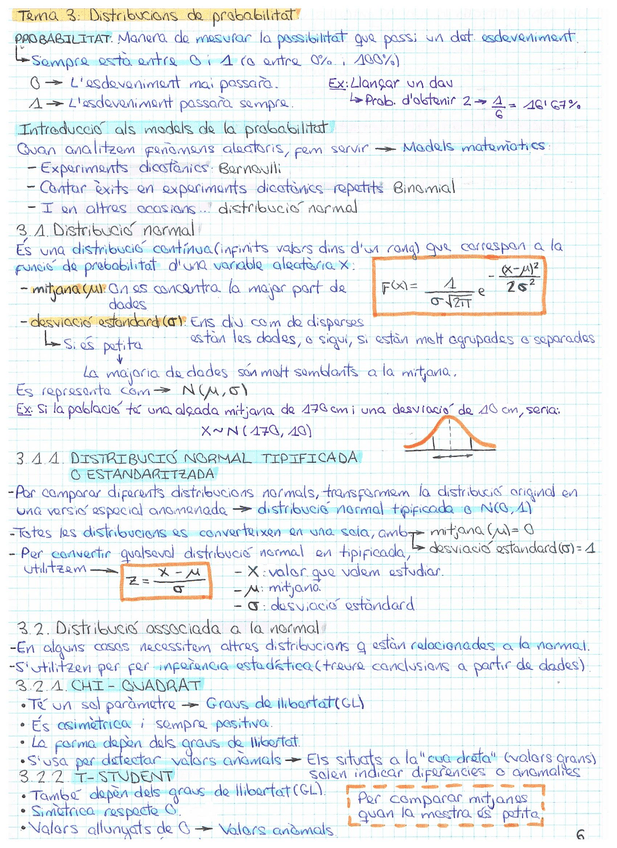 Tema 3: Distribucions de probabilitat
PROBABILITAT: Manera de mesurar la possibilitat que passi un det. esdeveniment.
↳ Sempre està entre 0 i 1 (o entre 0% i 100%)
0 → L'esdeveniment mai passarà.
1 → L'esdeveniment passarà sempre.
Ex: Llançar un dau
↳ Prob. d'obtenir 2 → 1/6 = 16'67%
Introducció als models de la probabilitat
Quan analitzem fenòmens aleatoris, fem servir → Models matemàtics:
- Experiments dicotònics: Bernoulli
- Contar èxits en experiments dicotònics repetits: Binomial
- I en altres ocasions...: distribució normal
3.1. Distribució normal
És una distribució contínua (infinits valors dins d'un rang) que correspon a la
funció de probabilitat d'una variable aleatòria X:
- mitjana (μ): On es concentra la major part de
dades
F(x) = 1/(σ√2π) e^(-(x-μ)²/2σ²)
- desviació estàndard (σ): Ens diu com de disperses
estàn les dades, o sigui, si estàn molt agrupades o separades
↳ Si és petita
↓
La majoria de dades són molt semblants a la mitjana.
Es representa com → N(μ, σ)
Ex: Si la població té una alçada mitjana de 170 cm i una desviació de 10 cm, seria:
X ~ N(170, 10)
3.1.1. DISTRIBUCIÓ NORMAL TIPIFICADA
O ESTANDARITZADA
- Per comparar diferents distribucions normals, transformem la distribució original en
una versió especial anomenada → distribució normal tipificada o N(0, 1)
- Totes les distribucions es converteixen en una sola, amb → mitjana (μ) = 0
↳ desviació estàndard (σ) = 1
- Per convertir qualsevol distribució normal en tipificada,
utilitzem → Z = (X - μ)/σ
- X: valor que volem estudiar.
- μ: mitjana
- σ: desviació estàndard
3.2. Distribució associada a la normal
- En alguns casos necessitem altres distribucions q estàn relacionades a la normal.
- S'utilitzen per fer inferència estadística (treure conclusions a partir de dades).
3.2.1. CHI - QUADRAT
• Té un sol paràmetre → Graus de llibertat (GL)
• És asimètrica i sempre positiva.
• La forma depèn dels graus de llibertat.
• S'usa per detectar valors anòmals → Els situats a la "cua dreta" (valors grans)
solen indicar diferències o anomalies
3.2.2 T-STUDENT
• També depèn dels graus de llibertat (GL).
• Simètrica respecte 0.
• Valors allunyats de 0 → Valors anòmals.
Per comparar mitjanes
quan la mostra és petita
6